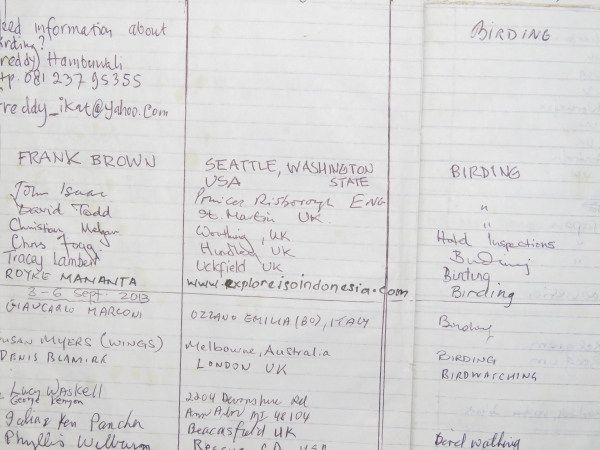 Need information about
Birding?
Freddy) Hambuwali
Hp. 081 237 95355
freddy_ikat@yahoo.com
BIRDING
FRANK BROWN SEATTLE, WASHINGTON BIRDING
USA STATE
John Isaac Princes Risborough ENG "
David Todd St. Martin UK "
Christian Worthing, UK Hotel Inspections
Chris Fogg UK Birding
Tracy Lambert Uckfield UK Birding
ROYKE MANANTA www.exploreisoindonesia.com Birding
3-6 Sept 2013
GIANCARLO MARCONI OZZANO EMILIA (BO), ITALY Birding
SUSAN MYERS (WINGS) Melbourne, Australia BIRDING
DENIS BLAMIRE LONDON UK BIRDWATCHING
Lucy Waskell 2204 Devonshire Rd
George Kenyon Ann Arbor MI 48104
Ken UK
Phyllis CA USA Bird watching